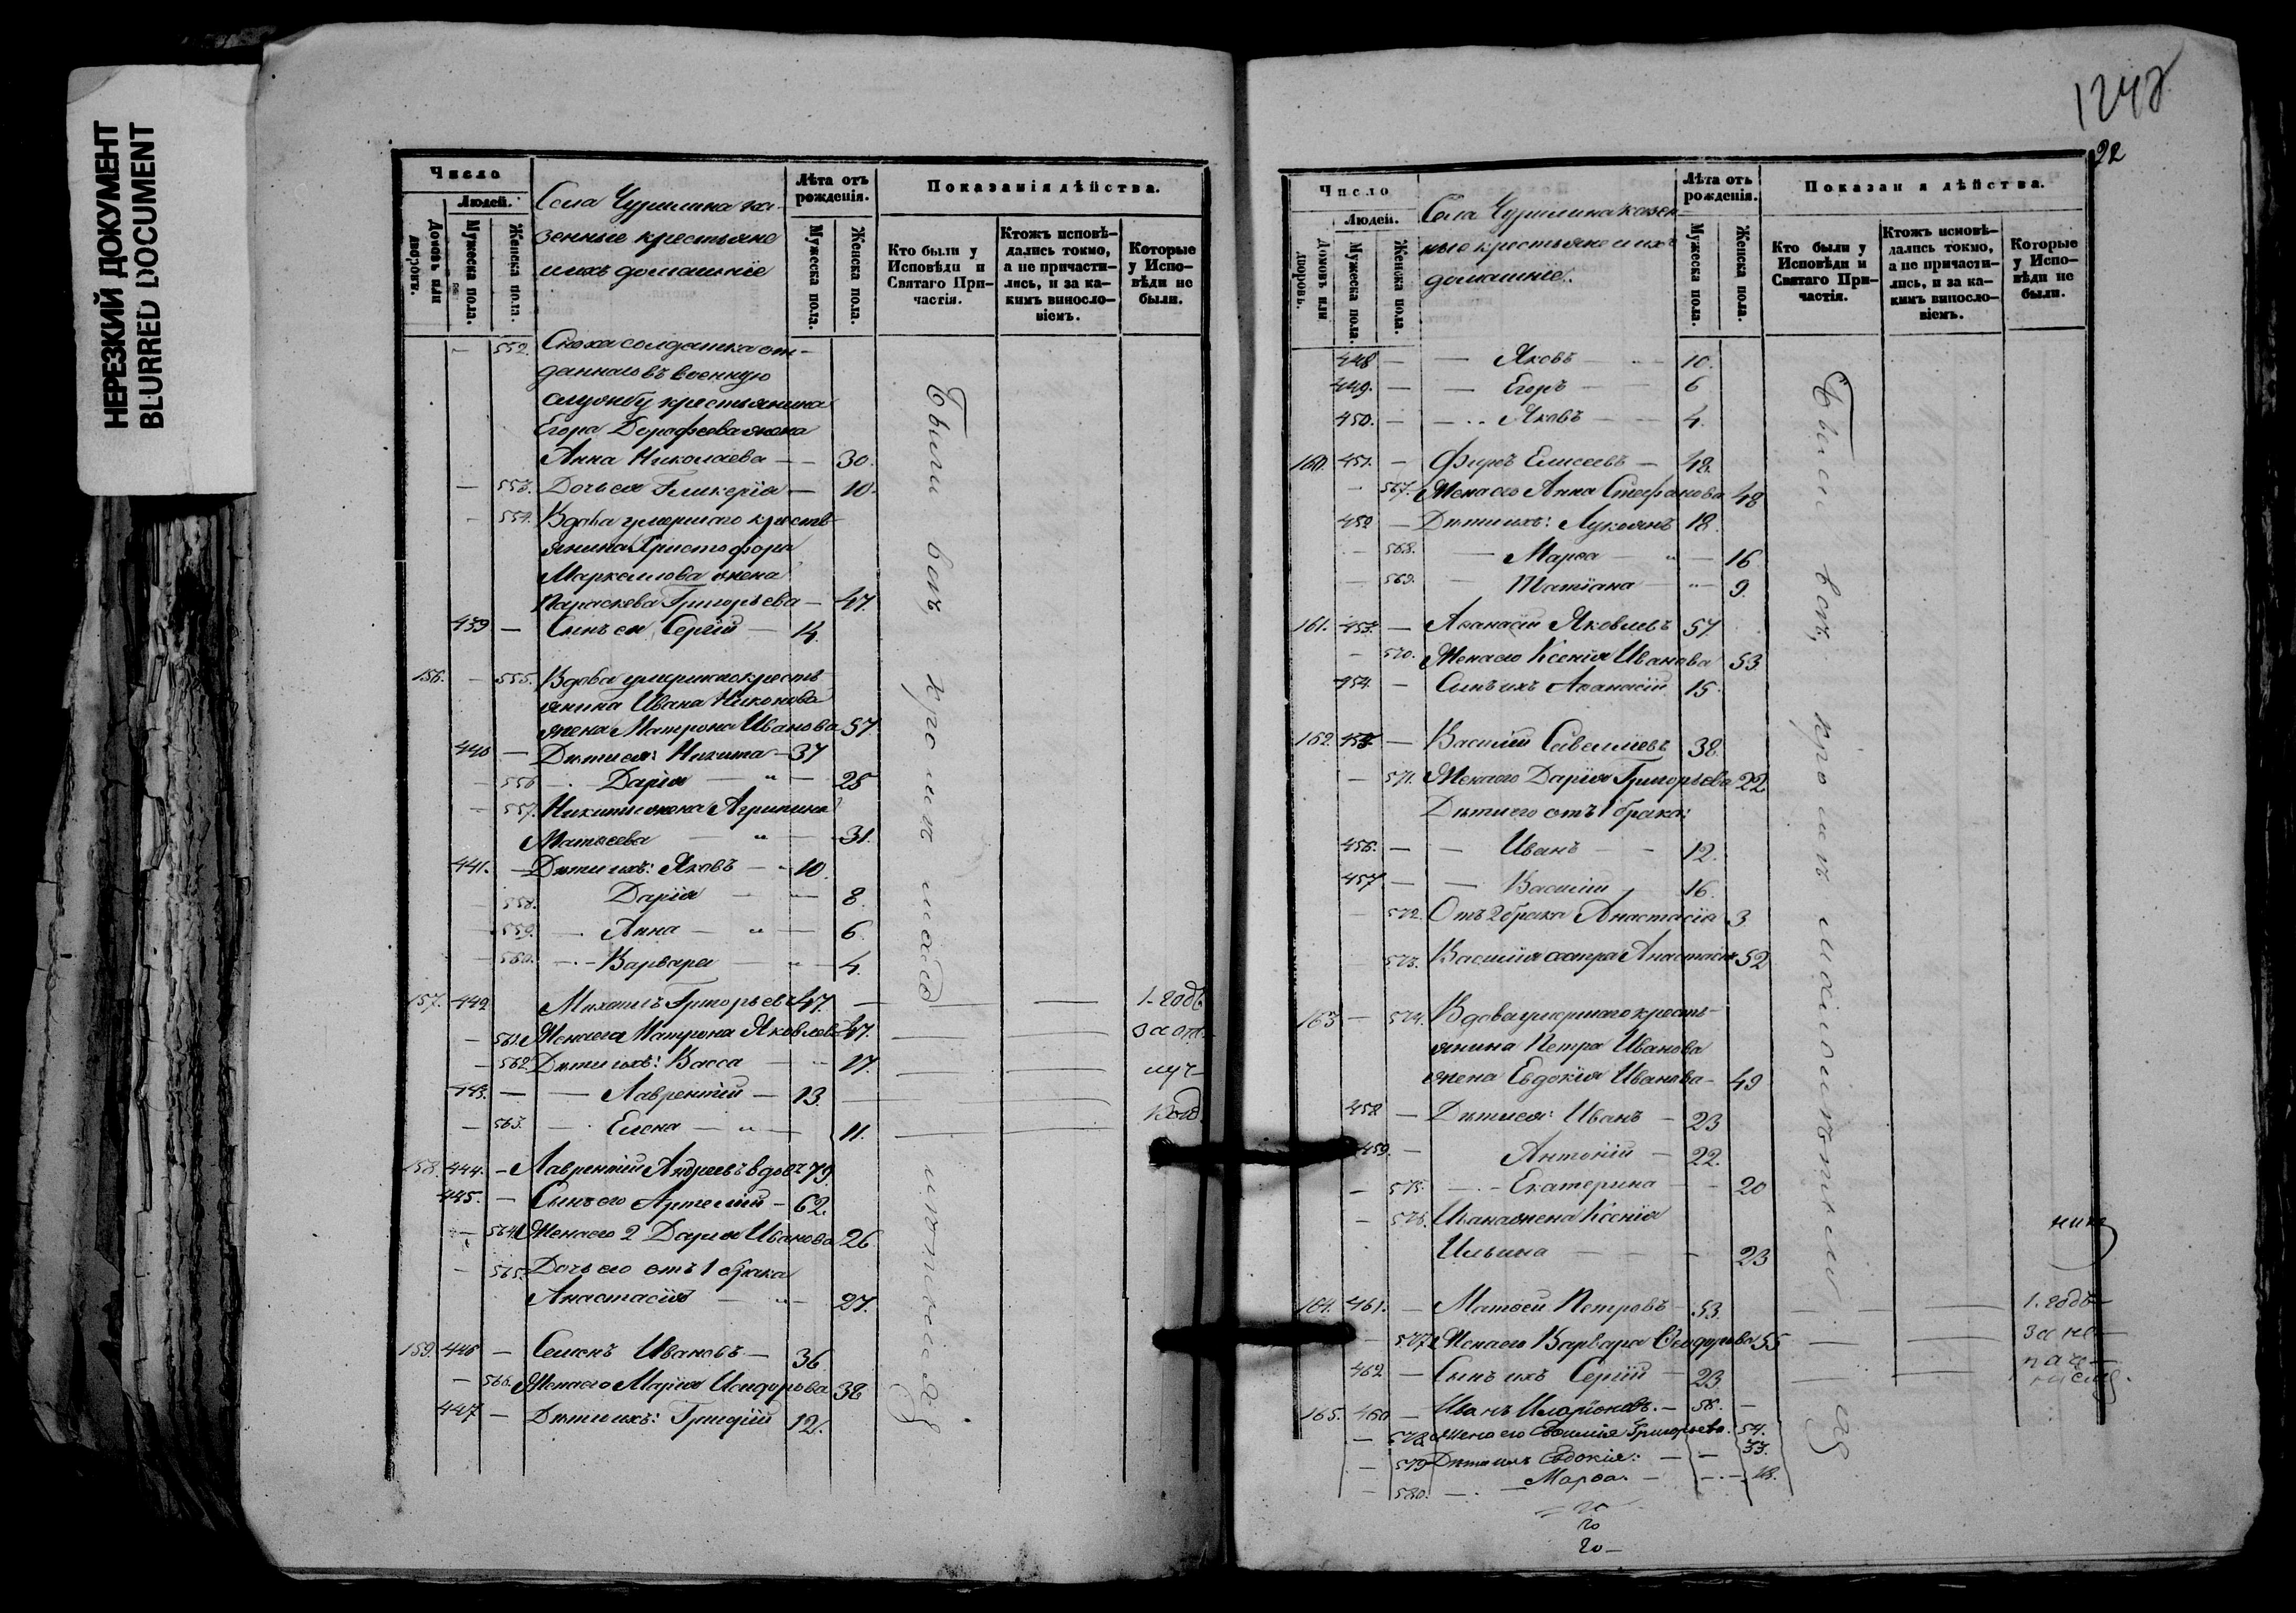 НЕРЕЗКИЙ ДОКУМЕНТ
BLURRED DOCUMENT
Число
Людей.
Домовъ или дворовъ.
Мужеска пола.
Женска пола.
Села Чурилина ка-
зенные крестьяне
ихъ домашніе
Лѣта отъ рожденія.
Мужеска пола.
Женска пола.
Показанія дѣйства.
Кто были у Исповѣди и Святаго При-частія.
Ктожъ исповѣ-дались токмо, а не причасти-лись, и за ка-кимъ виносло-віемъ.
Которые у Испо-вѣди не были.
— 552. Сноха солдатка от-
даннаго въ военную
службу крестьянина
Егора Дорофеева жена
Анна Николаева — — 30.
— 553. Дочь ея Гликерія — 10.
— 554. Вдова умершаго кресть-
янина Христофора
Маркеллова жена
Параскева Григорьева — 47.
439 — Сынъ ея Сергій — 14.
156. — 555. Вдова умершаго кресть-
янина Ивана Никонова
жена Матрона Иванова 57
440 — Дѣти ея: Никита — 37
— 556 — Дарія — " — 25
— 557. Никиты жена Агрипина
Матѳеева — " — 31.
441. — Дѣти ихъ: Яковъ — 10.
— 558. Дарія — — 8.
— 559. — Анна — " — 6.
— 560. — Варвара — " — 4.
157. 442 Михаилъ Григорьевъ 47. — — — 1-годъ
— 561. Жена его Матрона Яковлева 47. — — за от-
— 562. Дѣти ихъ: Васса — — 17. — — луч-
443. — — Лаврентій — 13. — —
— 563. — Елена — " — 11. — —
158. 444. — Лаврентій Андреевъ вдовъ 79.
445. — Сынъ его Артемій — 62.
— 564. Жена его 2 Дарія Иванова 26
— 565. Дочь его отъ 1 брака
Анастасія — " — 27.
159. 446 — Семенъ Ивановъ — 36.
— 566. Жена его Марія Исидорова 38
447 — Дѣти ихъ: Григорій 12.
Были всѣ, кромѣ мало
лѣтнихъ
1242
22
Число
Людей.
Домовъ или дворовъ.
Мужеска пола.
Женска пола.
Села Чурилина казен-
ные крестьяне и ихъ
домашніе.
Лѣта отъ рожденія.
Мужеска пола.
Женска пола.
Показан я дѣйства.
Кто были у Исповѣди и Святаго При-частія.
Ктожъ исповѣ-дались токмо, а не причасти-лись, и за ка-кимъ винносло-віемъ.
Которые у Испо-вѣди не были.
448 — — Яковъ — 10.
449. — — Егоръ — 6
450. — — Яковъ — — 4.
160. 451. — Фирсъ Елисеевъ — 48.
— 567. Жена его Анна Стефанова 48
452 — Дѣти ихъ: Лукіянъ 18.
— 568. — Марѳа — " — 16
— 569. — Татіана — " — 9.
161. 453. — Аѳанасій Яковлевъ 57
— 570. Жена его Ксенія Иванова 53
454. — Сынъ ихъ Аѳанасій 15.
162. 455 — Василій Савеліевъ 38.
— 571. Жена его Дарія Григорьева 22.
Дѣти его отъ 1 брака:
456. — — Иванъ — — 12.
457 — — Василій — 16.
— 572. Отъ 2 брака Анастасія 3
573. Василія сестра Анастасія 52
163 — 574. Вдова умершаго кресть-
янина Петра Иванова
жена Евдокія Иванова — 49
458 — Дѣти ея: Иванъ — 23
459. — Антоній — 22.
— 575. — Екатерина — — 20
— 576. Ивана жена Ксенія
Ильина — — — 23
164. 461. — Матѳей Петровъ — 53. — — 1. годъ
— 577. Жена его Варвара Ѳеодорова 55 — — за не-
462 — Сынъ ихъ Сергій — 23 — —
165. 460 — Иванъ Иларіоновъ — 58. —
— 578 Жена его Евфимія Григорьева. 54.
— 579 Дѣти ихъ Евдокія: — — 33.
— 580. — Марѳа. — — 18.
Были всѣ, кромѣ малолѣтнихъ
20
20 —